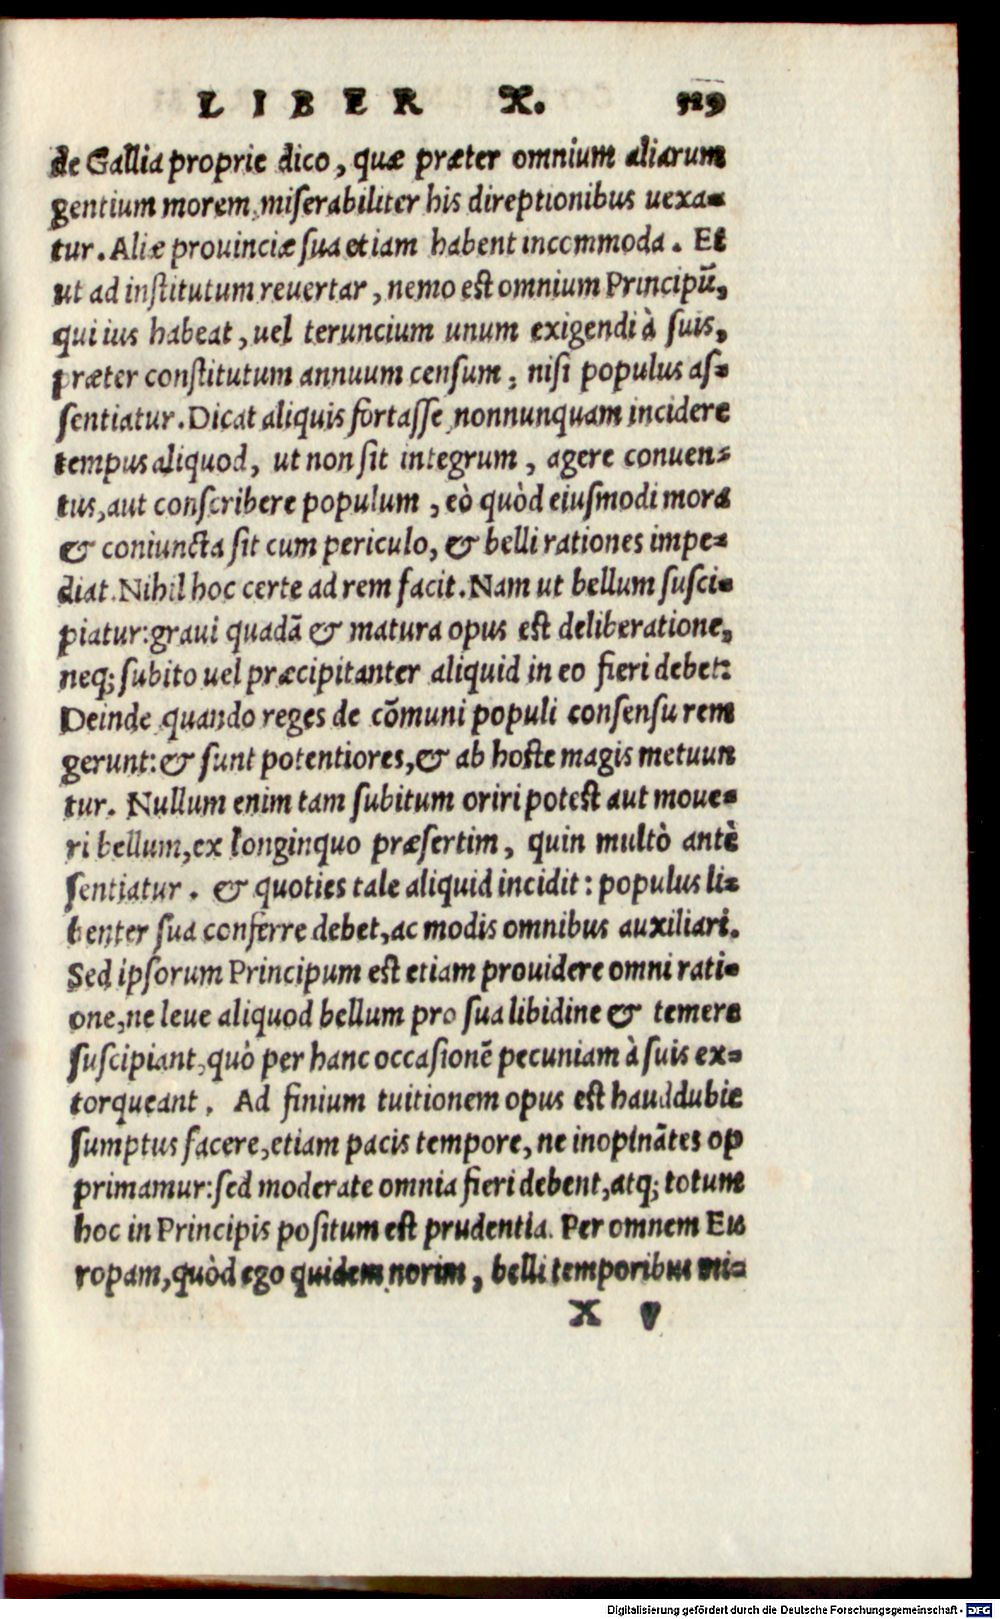 LIBER X. 329
de Gallia proprie dico, quæ præter omnium aliarum
gentium morem, miserabiliter his direptionibus uexa-
tur. Aliæ prouinciæ sua etiam habent incommoda. Et
ut ad institutum reuertar, nemo est omnium Principũ,
qui ius habeat, uel teruncium unum exigendi à suis,
præter constitutum annuum censum, nisi populus as-
sentiatur. Dicat aliquis fortasse, nonnunquam incidere
tempus aliquod, ut non sit integrum, agere conuen-
tus, aut conscribere populum, eò quòd eiusmodi mora
& coniuncta sit cum periculo, & belli rationes impe-
diat. Nihil hoc certe ad rem facit. Nam ut bellum susci-
piatur: graui quadã & matura opus est deliberatione,
neq; subito uel præcipitanter aliquid in eo fieri debet:
Deinde quando reges de cõmuni populi consensu rem
gerunt: & sunt potentiores, & ab hoste magis metuun
tur. Nullum enim tam subitum oriri potest aut moue-
ri bellum, ex longinquo præsertim, quin multò antè
sentiatur. & quoties tale aliquid incidit: populus li-
benter sua conferre debet, ac modis omnibus auxiliari.
Sed ipsorum Principum est etiam prouidere omni rati-
one, ne leue aliquod bellum pro sua libidine & temere
suscipiant, quò per hanc occasionẽ pecuniam à suis ex-
torqueant. Ad finium tuitionem opus est hauddubie
sumptus facere, etiam pacis tempore, ne inopinãtes op
primamur: sed moderate omnia fieri debent, atq; totum
hoc in Principis positum est prudentia. Per omnem Eu
ropam, quòd ego quidem norim, belli temporibus mi-
X v
Digitalisierung gefördert durch die Deutsche Forschungsgemeinschaft - DFG